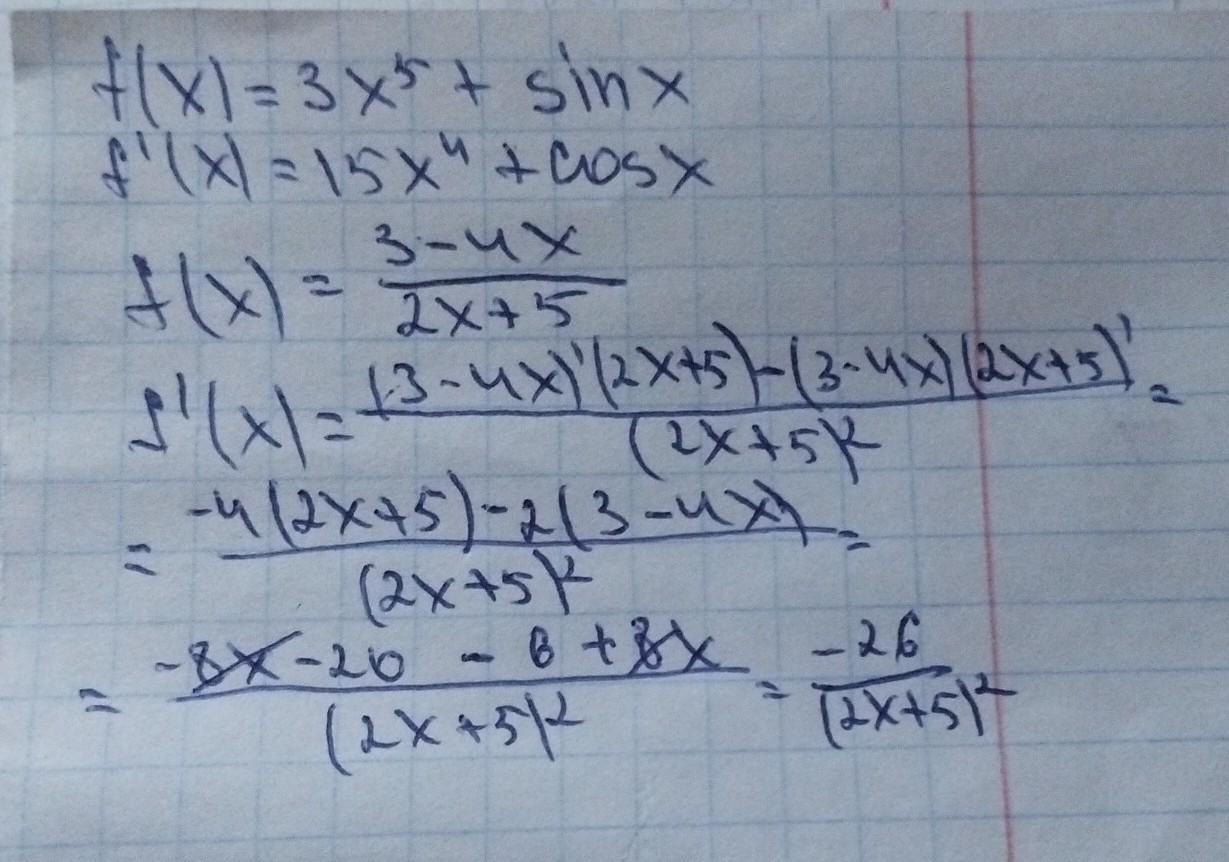 f(x) = 3x⁵ + sin x
f'(x) = 15x⁴ + cos x
f(x) = (3 - 4x)/(2x + 5)
f'(x) = ((3 - 4x)'(2x + 5) - (3 - 4x)(2x + 5)')/(2x + 5)² =
= (-4(2x + 5) - 2(3 - 4x))/(2x + 5)² =
= (-8x - 20 - 6 + 8x)/(2x + 5)² = -26/(2x + 5)²